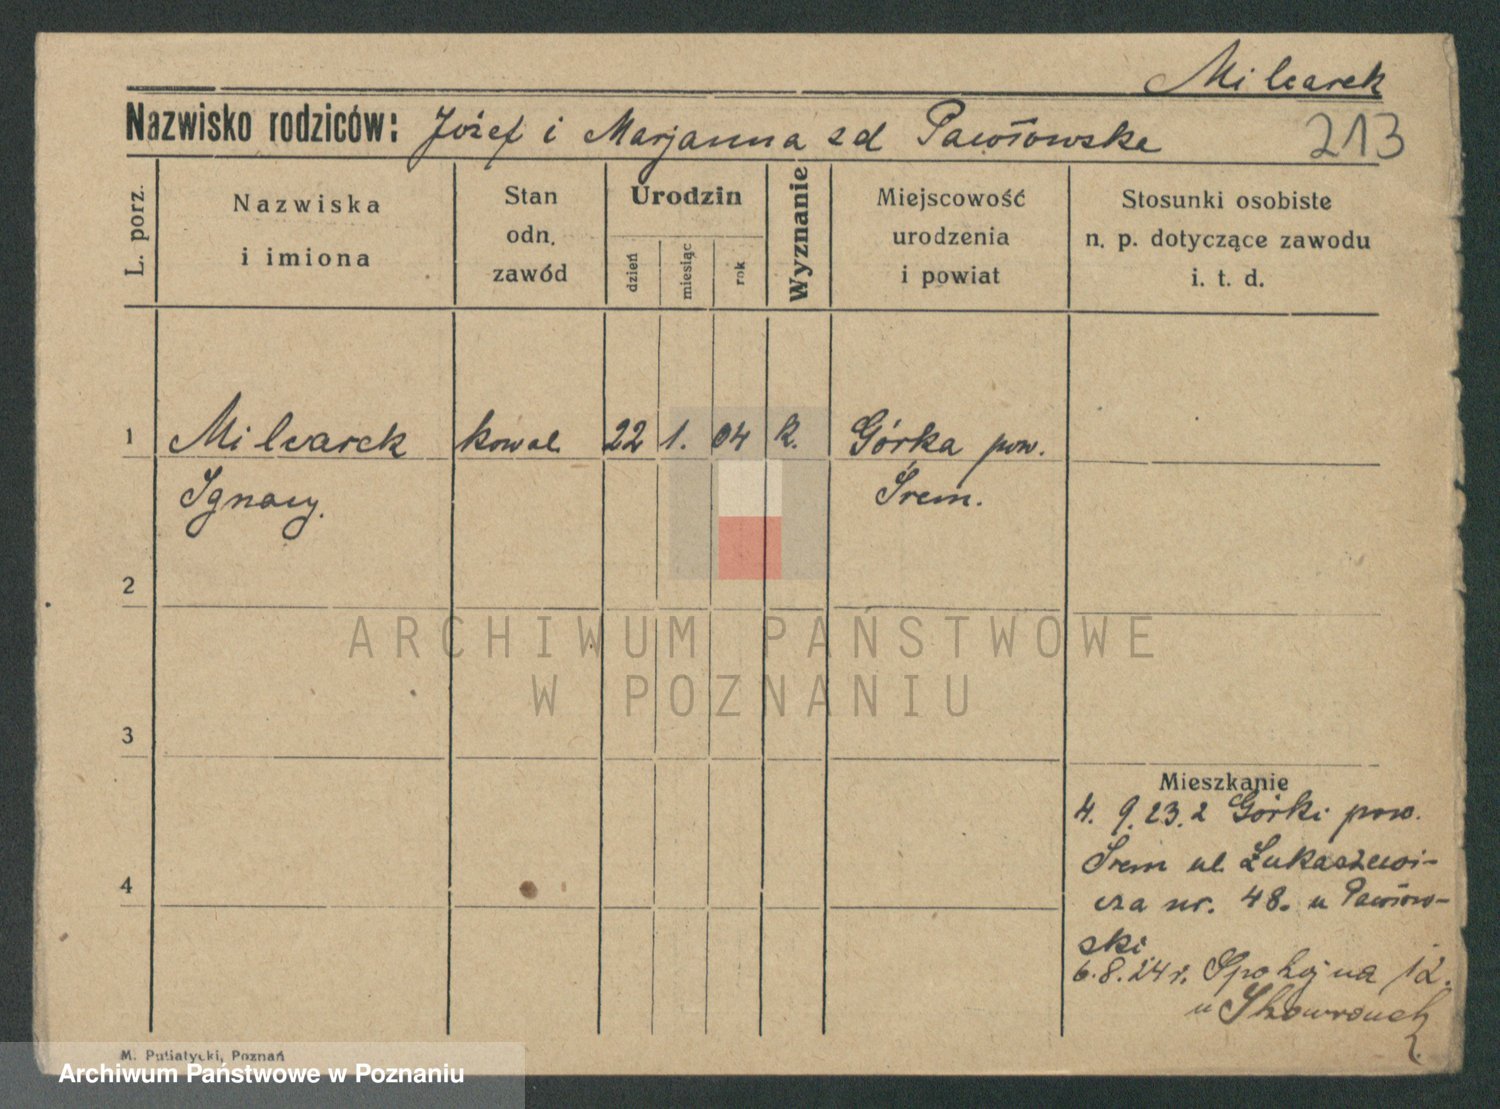 Milcarek
Nazwisko rodziców: Józef i Marjanna zd Pawłowska
213
L. porz.
Nazwiska
i imiona
Stan
odn.
zawód
Urodzin
dzień
miesiąc
rok
Wyznanie
Miejscowość
urodzenia
i powiat
Stosunki osobiste
n. p. dotyczące zawodu
i. t. d.
1 Milcarek kowal 22 1. 04 k. Górka pow.
Ignacy. Śrem.
2
ARCHIWUM PAŃSTWOWE
W POZNANIU
3
Mieszkanie
4. 9. 23. z Górki pow.
Śrem ul Łukaszewi-
4
cza nr. 48. u Pawłow-
ski
6.8.24r. Spokojna 12.
u
M. Putiatycki, Poznań
Archiwum Państwowe w Poznaniu